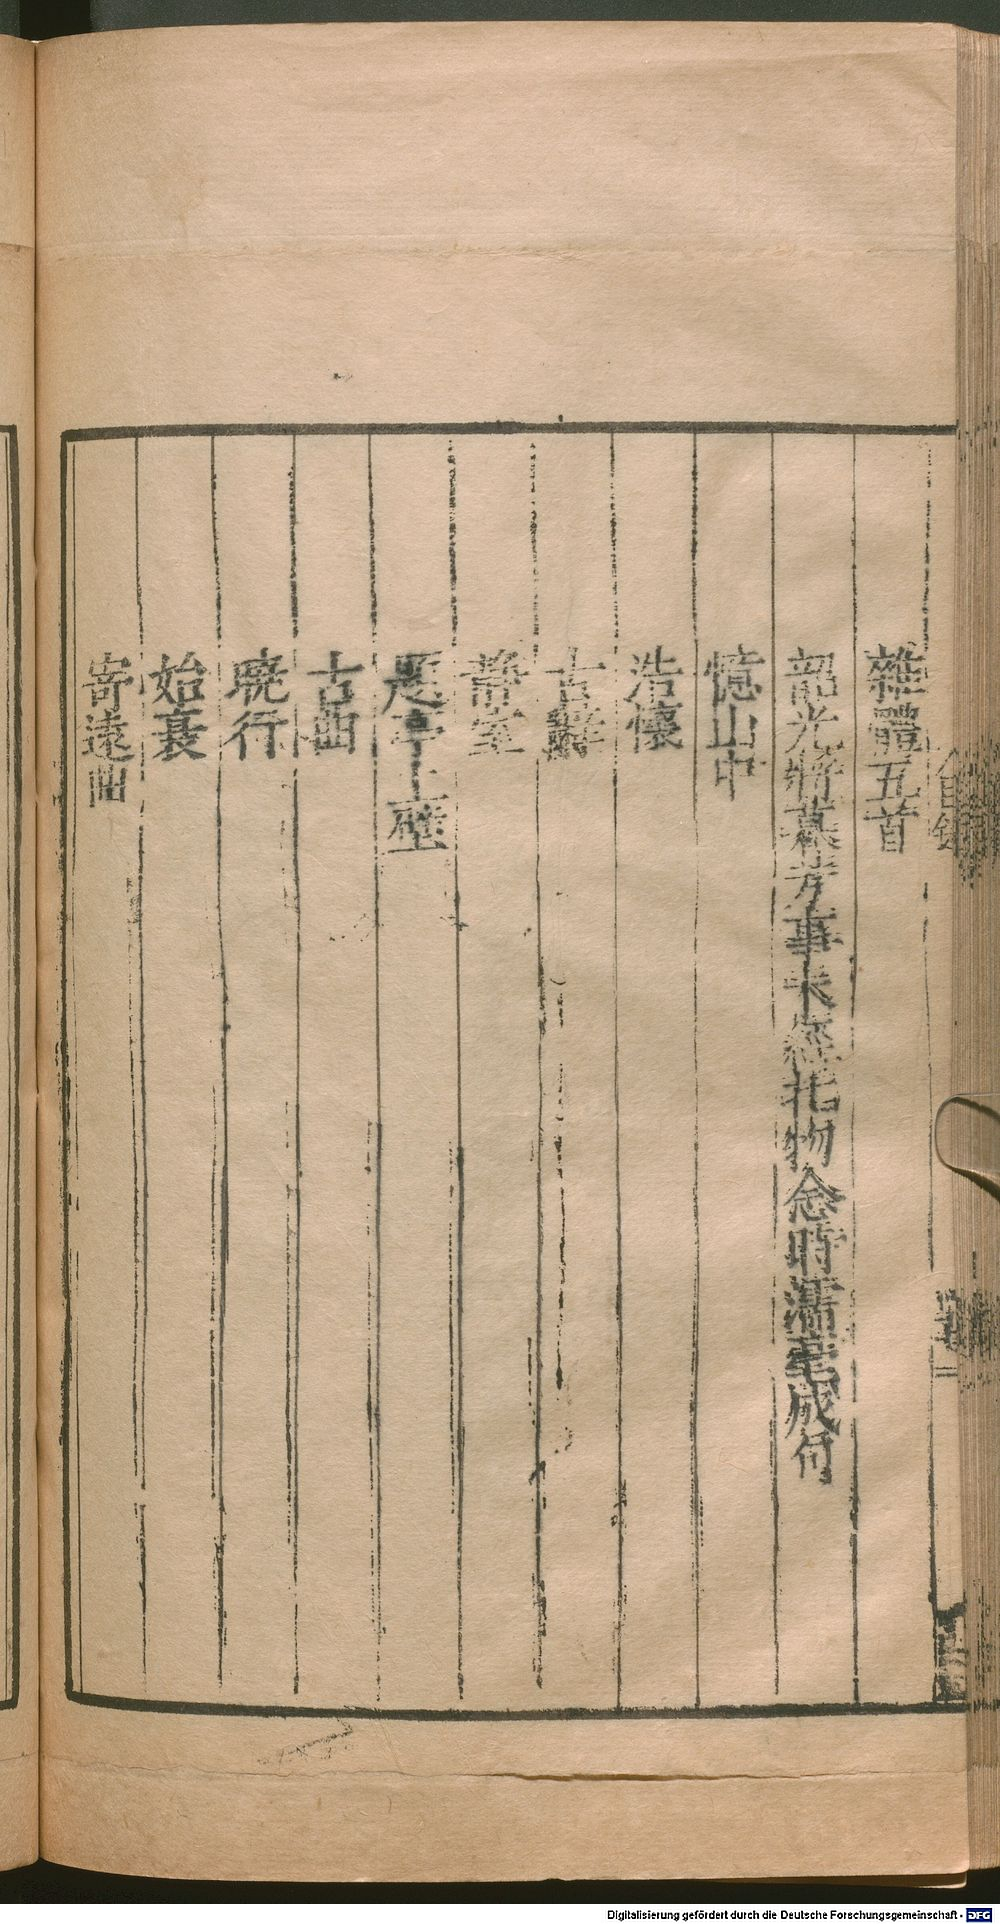 雜體五首
韶光將暮芳事未經托物念時濡毫成句
憶山中
浩懷
古辭
靜室
題亭上壁
古曲
曉行
始衰
寄遠曲
目錄
Digitalisierung gefördert durch die Deutsche Forschungsgemeinschaft - DFG